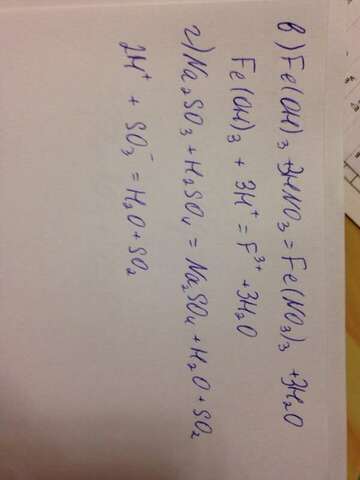 в) Fe(OH)₃ + 3HNO₃ = Fe(NO₃)₃ + 3H₂O
Fe(OH)₃ + 3H⁺ = F³⁺ + 3H₂O
г) Na₂SO₃ + H₂SO₄ = Na₂SO₄ + H₂O + SO₂
2H⁺ + SO₃⁻ = H₂O + SO₂